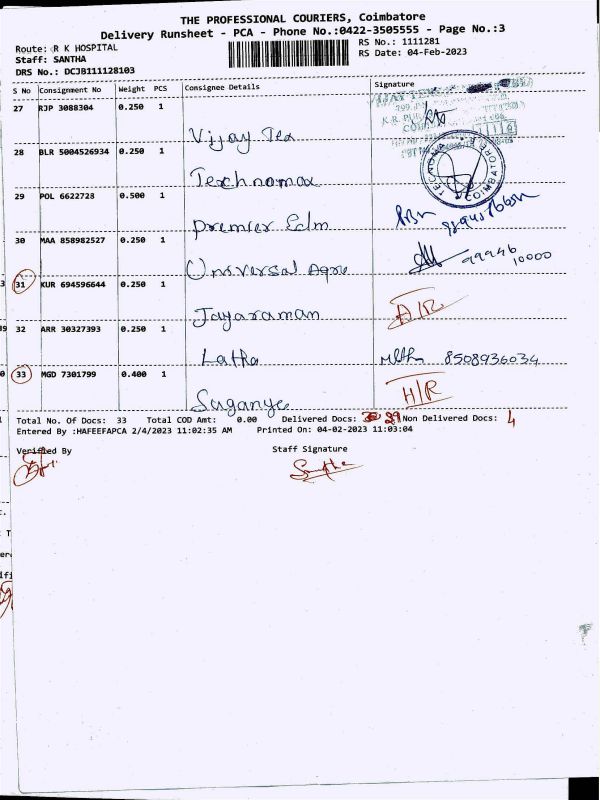 THE PROFESSIONAL COURIERS, Coimbatore
Delivery Runsheet - PCA - Phone No.:0422-3505555 - Page No.:3
Route: R K HOSPITAL
RS No.: 1111281
Staff: SANTHA
RS Date: 04-Feb-2023
DRS No.: DCJB111128103
S No Consignment No Weight PCS Consignee Details Signature
27 RJP 3088304 0.250 1
Vijay Tex
28 BLR 5004526934 0.250 1
Technomax
TECHNOMAX COIMBATORE
29 POL 6622728 0.500 1
Premier Edm
30 MAA 858982527 0.250 1
Universal Agro 99946 10000
31 KUR 694596644 0.250 1
Jayaraman A/R
32 ARR 30327393 0.250 1
Latha 8508936034
33 MGD 7301799 0.400 1
Suganye H/R
Total No. Of Docs: 33 Total COD Amt: 0.00 Delivered Docs: 29 Non Delivered Docs: 4
Entered By :HAFEEFAPCA 2/4/2023 11:02:35 AM Printed On: 04-02-2023 11:03:04
Verified By Staff Signature